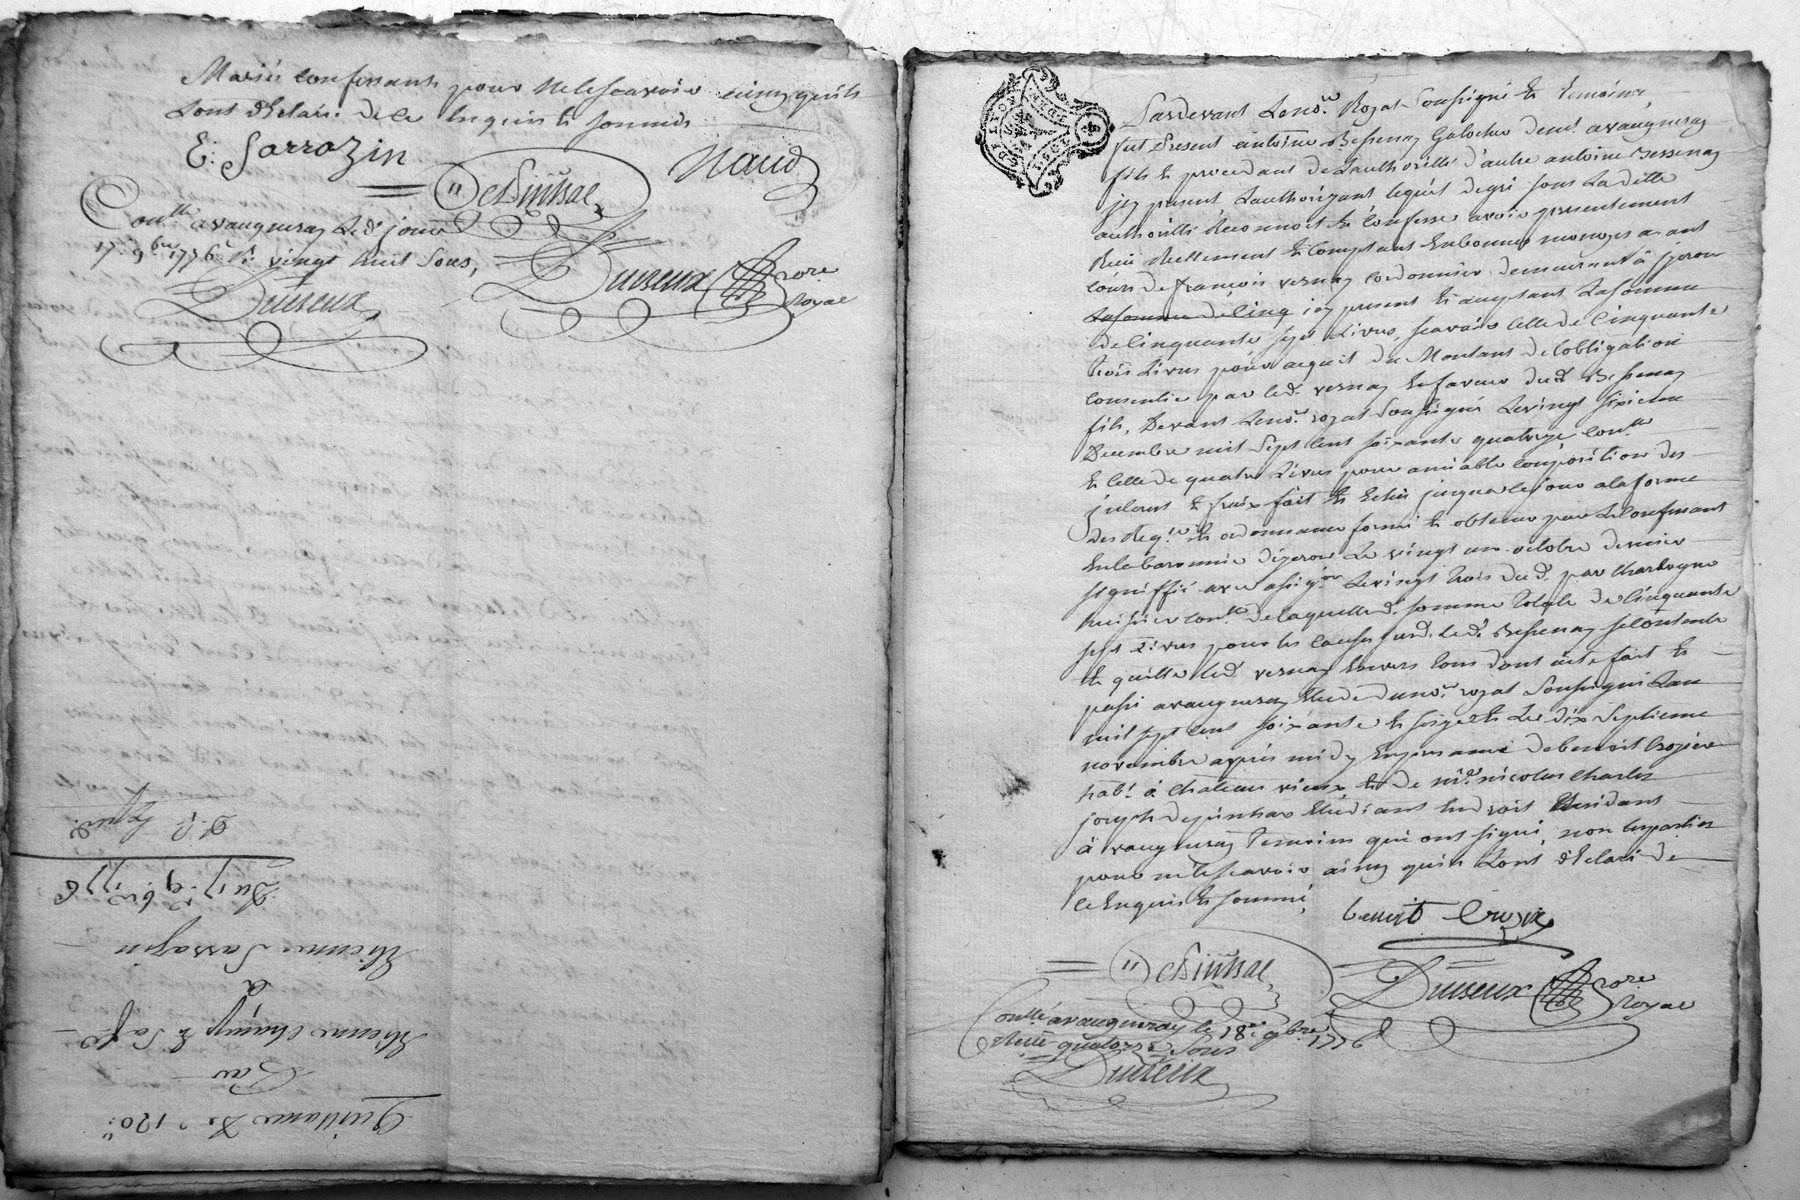 Mariés confessants pour ne le scavoir ainsy quils
Lont declaré de ce Enquis & sommés
E: Sarrazin
Naud
Depinhac
Conllé a vaugneray Led. jour
17e 9bre 1776 R. vingt huit sous,
Duiseux
Duiseux
nore
royal
D. P. Exped.
Du 17e 9bre 1776
Etienne Sarrazin
a
Etienne & Sa fe
Par
Quittance De 120.
Pardevant Le nore. Royal Soussigné & temoins
fut Present antoine Bessenay Galocher demt. a vaugneray
fils & procedant de Lauthorité d'autre antoine Bessenay
jcy present, Lauthorizant lequel de gré sous La ditte
authorité Reconnoit & Confesse avoir presentement
Receu Reellement & Comptant En bonnes monoyes ayant
Cours de francois vernay Cordonnier demeurant à jzeron
La somme de Cinq jcy present & acceptant La somme
de Cinquante sept Livres, scavoir celle de Cinquante
trois Livres pour acquit du Montant de Lobligation
Consentie par led. vernay En faveur dud. Bessenay
fils, Devant Le nore. royal Soussigné Le vingt sixieme
Decembre mil Sept Cent soixante quatorze Conllé
& Celle de quatre Livres pour amiable Composition des
jnterets & fraix fait & Echus jusqua ce jour a la forme
des Reqte. & ordonnance formé & obtenue par Le Confessant
En la baronnie d'jzeron Le vingt un octobre dernier
signiffié avec assigon Le vingt trois dud. par Charbogne
huissier Conllé de laquelle d. somme totale de Cinquante
sept Livres pour les causes susd. Led. Bessenay se Contente
& quitte led. vernay Envers tous dont acte fait &
passé a vaugneray Etude du nore. royal Soussigné Lan
mil sept Cent soixante & seize & Le dix Septieme
novembre après midy En presence de benoit Crozier
habt. à Chateau vieux & de me. nicolas Charles
joseph depinhac Etudiant En droit Residant
à vaugneray temoins qui ont signé, non les parties
pour ne le scavoir ainsy quils Lont declaré de
ce Enquis & sommé,
benoit Crozier
Depinhac
Duiseux
nore
royal
Conllé a vaugneray le 18e. 9bre. 1776
Receu quatorze Sous
Duiseux